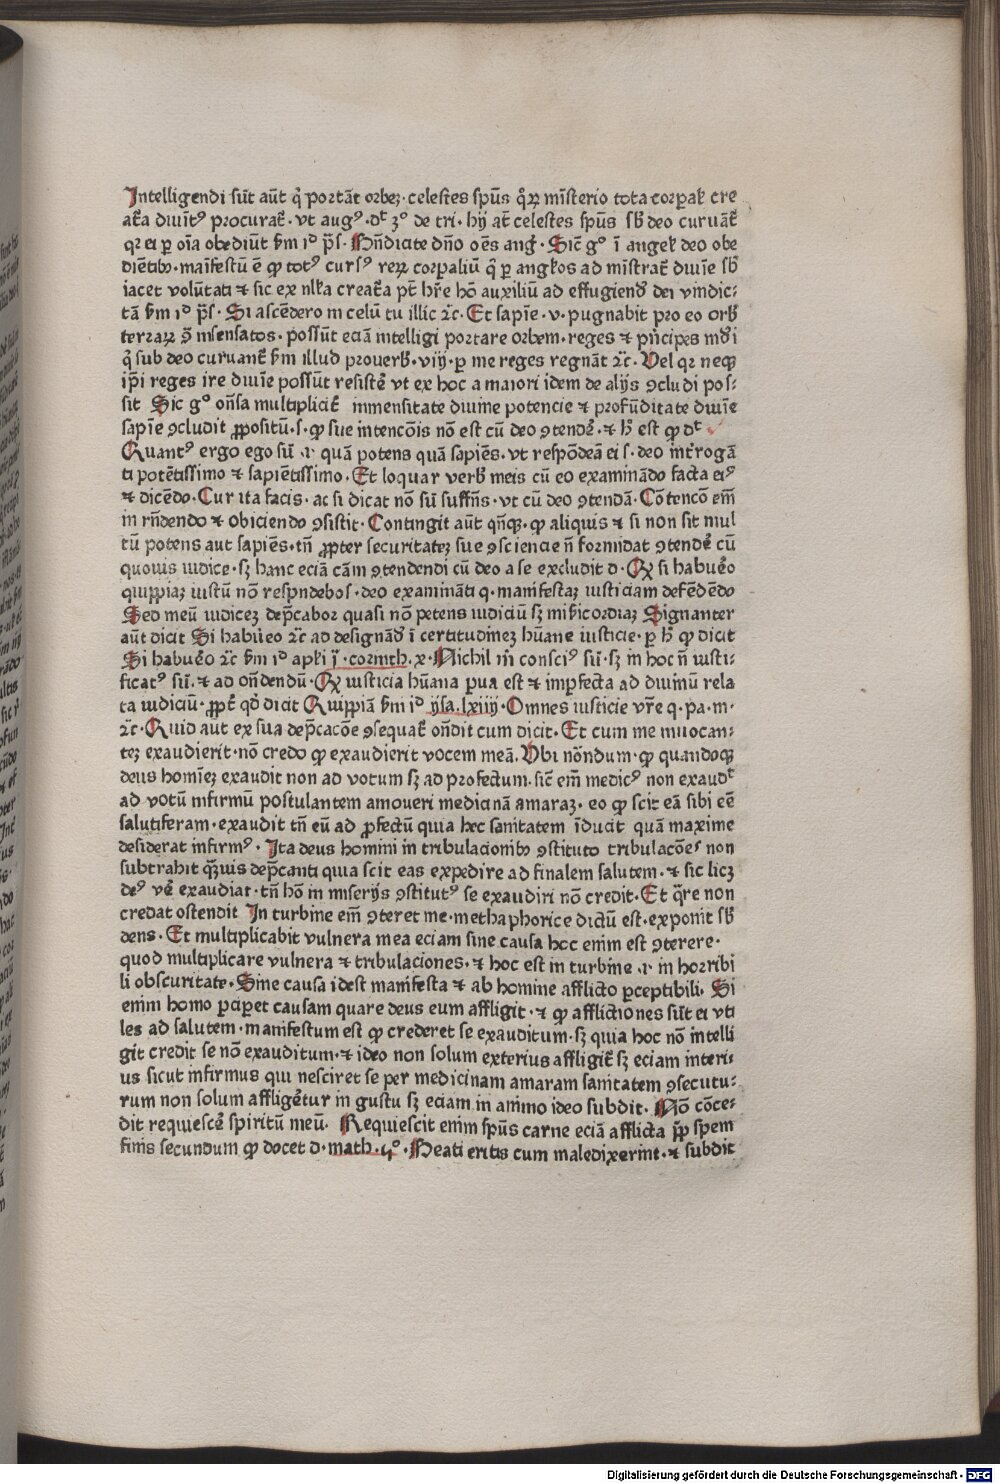 Intelligendi sūt aūt q̄ portāt orbeȝ celestes spūs q̊ꝝ mīsterio tota corpal' cre
at̄a diuīt᷒ procurat̄. vt aug᷒. dt̄ 3º de tri. hij at̄ celestes spūs sb̄ deo curuāt̄
qꝛ ei ꝑ oīa obediūt ẜm iḋ p̄s. Bn̄dicite dn̄o oēs angl̄. Sic̄ gº ī angel' deo obe
diētibꝰ. maīfestū ē ꝙ tot᷒ curs᷒ reꝝ corpaliū q̄ ꝑ angl'os ad mīstrat̄ diuīe sb̄
iacet volūtati ⁊ sic ex nl'la creat̄a pt̄ hr̄e hō auxiliū ad effugiend̄ dei vindic⸗
tā ẜm iḋ p̄s. Si ascēdero in celū tu illic ⁊c. Et sapīe. v. pugnabit pro eo orb̄
terraꝝ 9̄ insensatos. possūt eciā intelligi portare orbem. reges ⁊ pn̄cipes mūdi
q̄ sub deo curuant̄ ẜm illud prouerb̄. viij. ꝑ me reges regnāt ⁊c̄. Vel qꝛ neqꝫ
ip̄i reges ire diuīe possūt resistē vt ex hoc a maiori idem de alijs ꝯcludi pos⸗
sit Sic gº on̄sa multiplicit̄ immensitate diuine potencie ⁊ profūditate diuīe
sapīe ꝯcludit ꝓpositū. s. ꝙ sue intencōis nō est cū deo ꝯtendē. ⁊ h̄ est ꝙ dt̄
Quant᷒ ergo ego sū .i. quā potens quā sapiēs. vt respōdeā ei s. deo int̄rogā
ti potētissimo ⁊ sapiētissimo. Et loquar verb̄ meis cū eo examinādo facta ei᷒
⁊ dicēdo. Cur ita facis. ac si dicat nō sū suffn̄s. vt cū deo ꝯtendā. Cōtencō em̄
in rn̄dendo ⁊ obiciendo ꝯsistit. Contingit aūt qn̄qꝫ. ꝙ aliquis ⁊ si non sit mul
tū potens aut sapiēs. tn̄ ꝓpter securitateȝ sue ꝯsciencie n̄ formidat ꝯtendē cū
quouis iudice. sȝ hanc eciā cām ꝯtendendi cū deo a se excludit d. Qꝙ si habuēo
quippiaȝ iustū nō respndebo s. deo examināti q. manifestaȝ iusticiam defēdēdo
Sed meū iudiceȝ dep̄cabor quasi nō petens iudiciū sȝ mīẜicordiaȝ Signanter
aūt dicit Si habuēo ⁊c ad designād̄ ī certitudineȝ hūane iusticie. ꝑ h̄ ꝙ dicit
Si habuēo ⁊c ẜm iḋ apl'i j̄. corinth. x. Nichil m̄ consci᷒ sū. sȝ in hoc n̄ iusti⸗
ficat᷒ sū. ⁊ ad on̄dendū. Qꝙ iusticia hūana ꝑua est ⁊ imꝑfecta ad diuinū rela
ta iudiciū. ꝓpt̄ qd̄ dicit Quippiā ẜm iḋ ysa. lxiiij. Omnes iusticie vr̄e q. pa. m.
⁊c. Quid aut ex sua dep̄cacōe ꝯsequat̄ on̄dit cum dicit. Et cum me inuocan⸗
teȝ exaudierit. nō credo ꝙ exaudierit vocem meā. Vbi nōndum. ꝙ quandoqꝫ
deus homīeȝ exaudit non ad votum sȝ ad profectum. sic̄ em̄ medic᷒ non exaudt̄
ad votū infirmū postulantem amoueri medicinā amaraȝ. eo ꝙ scit eā sibi eē
salutiferam. exaudit tn̄ eū ad ꝓfectū quia hec sanitatem īducit quā maxime
desiderat infirm᷒. Ita deus homini in tribulacionibꝰ ꝯstituto tribulacōes non
subtrahit qȝuis dep̄canti quia scit eas expedire ad finalem salutem. ⁊ sic licȝ
de᷒ vē exaudiat. tn̄ hō in miserijs ꝯstitut᷒ se exaudiri nō credit. Et q̄re non
credat ostendit In turbine em̄ ꝯteret me. methaphorice dictū est. exponit sb̄
dens. Et multiplicabit vulnera mea eciam sine causa hoc enim est ꝯterere.
quod multiplicare vulnera ⁊ tribulaciones. ⁊ hoc est in turbine .i. in horribi
li obscuritate. Sine causa idest manifesta ⁊ ab homine afflicto ꝑceptibili. Si
enim homo ꝑciꝑet causam quare deus eum affligit. ⁊ ꝙ afflictiones sūt ei vti
les ad salutem. manifestum est ꝙ crederet se exauditum. sȝ quia hoc nō intelli
git credit se nō exauditum. ⁊ ideo non solum exterius affligit̄ sȝ eciam interi⸗
us sicut infirmus qui nesciret se per medicinam amaram sanitatem ꝯsecutu⸗
rum non solum affligētur in gustu sȝ eciam in animo ideo subdit. Nō cōce⸗
dit requiescē spiritū meū. Requiescit enim spūs carne eciā afflicta ꝓp spem
finis secundum ꝙ docet d. math. 4º. Beati eritis cum maledixerint. ⁊ subdit
Digitalisierung gefördert durch die Deutsche Forschungsgemeinschaft - DFG